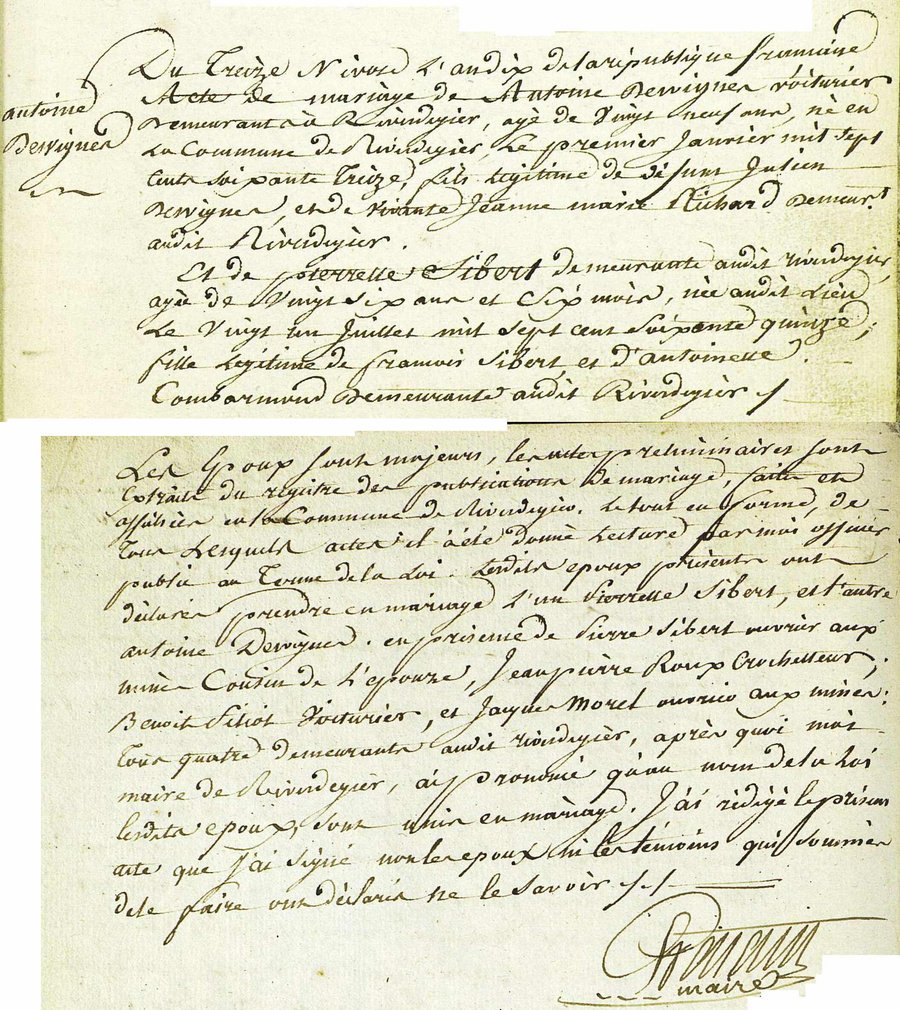 antoine
Dervignes
Du Treize Nivose L'an dix de la republique francaise
Acte de mariage de Antoine Dervignes Voiturier
Demeurant à Rivedegier, agé de Vingt neuf ans, né en
La Commune de Rivedegier, Le premier Janvier mil sept
Cents soixante Treize, fils Legitime de défunt Julien
Dervignes, et de vivante Jeanne marie Richard Demeurt
audit Rivedegier.
Et de pierrette Sibert demeurante audit rivedegier,
agée de Vingt six ans et Six mois, née audit Lieu
Le Vingt un Juillet mil Sept Cent Soixante quinze,
fille Legitime de francois Sibert, et d'antoinette
Combarmond Demeurante audit Rivedegier
Les Epoux sont majeurs, les actes preliminaires sont
Extraits du registre des publications de mariage, faites et
affichées en la Commune de Rivedegier. Le tout en forme, de
Tous Lesquels actes il a été donné Lecture par moi officier
public au Terme de la Loi. Lesdits epoux présents ont
déclarés prendre en mariage L'un Pierrette Sibert, et l'autre
antoine Dervignes. en présence de Pierre Sibert ouvrier aux
mines Cousin de L'epouze, Jean pierre Roux Crochetteur,
Benoit Filiot Voiturier, et Jacques Morel ouvrier aux mines.
Tous quatre demeurants audit rivedegier, après quoi moi
maire de Rivedegier, ai prononcé qu'au nom de la Loi
lesdits epoux, sont unis en mariage. J'ai rédigé le présent
acte que J'ai signé non les epoux ni les témoins qui sommés
de le faire ont déclarés ne le Savoir
maire